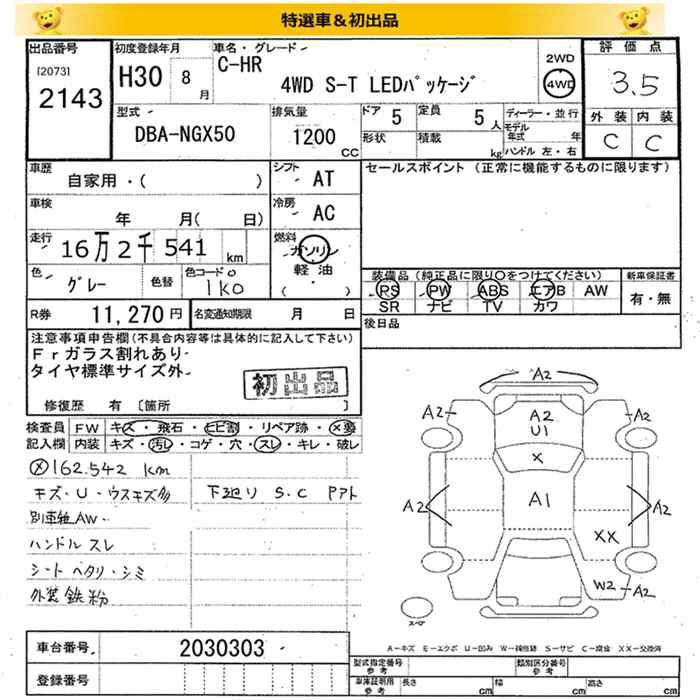 特選車＆初出品
出品番号 初度登録年月 車名・グレード 2WD 評価点
[2073] H30 8月 C-HR 4WD 3.5
2143 4WD S-T LEDパッケージ
型式 排気量 ドア 定員 ディーラー・並行 外装 内装
DBA-NGX50 1200 CC 5 5人 モデル年式 年 C C
形状 積載 kg ハンドル 左・右
車歴 シフト セールスポイント(正常に機能するものに限ります)
自家用・( ) AT
車検 冷房
年 月( 日) AC
走行 燃料
16万2千541 km ガソリン
軽油
( )
色 色替 色コード 装備品(純正品に限り○をつけてください) 新車保証書
グレー 1K0 PS PW ABS エアB AW 有・無
SR ナビ TV カワ
R券 11,270円 名変通知期限 月 日 後日品
注意事項申告欄(不具合内容等は具体的に記入して下さい)
Frガラス割れあり
タイヤ標準サイズ外
初出品
修復歴 有 [箇所 ]
検査員 FW キズ・飛石・ヒビ割・リペア跡・×要
記入欄 内装 キズ・汚し・コゲ・穴・スレ・キレ・破レ
×162.542 Km
キズ・U・ウスキズ多 下廻り S.C
別車種AW
ハンドルスレ
シートヘタリ・シミ
外装鉄粉
A2
A2 A2 A2
U1
X
A2 A1 A2
XX
W2 A2
スペア
A－キズ E－エクボ U－凹み W－補修跡 S－サビ C－腐食 XX－交換済
車台番号 2030303
登録番号
型式指定番号 参考 類別区分番号 参考
車庫証明用 参考 長さ cm 幅 cm 高さ cm